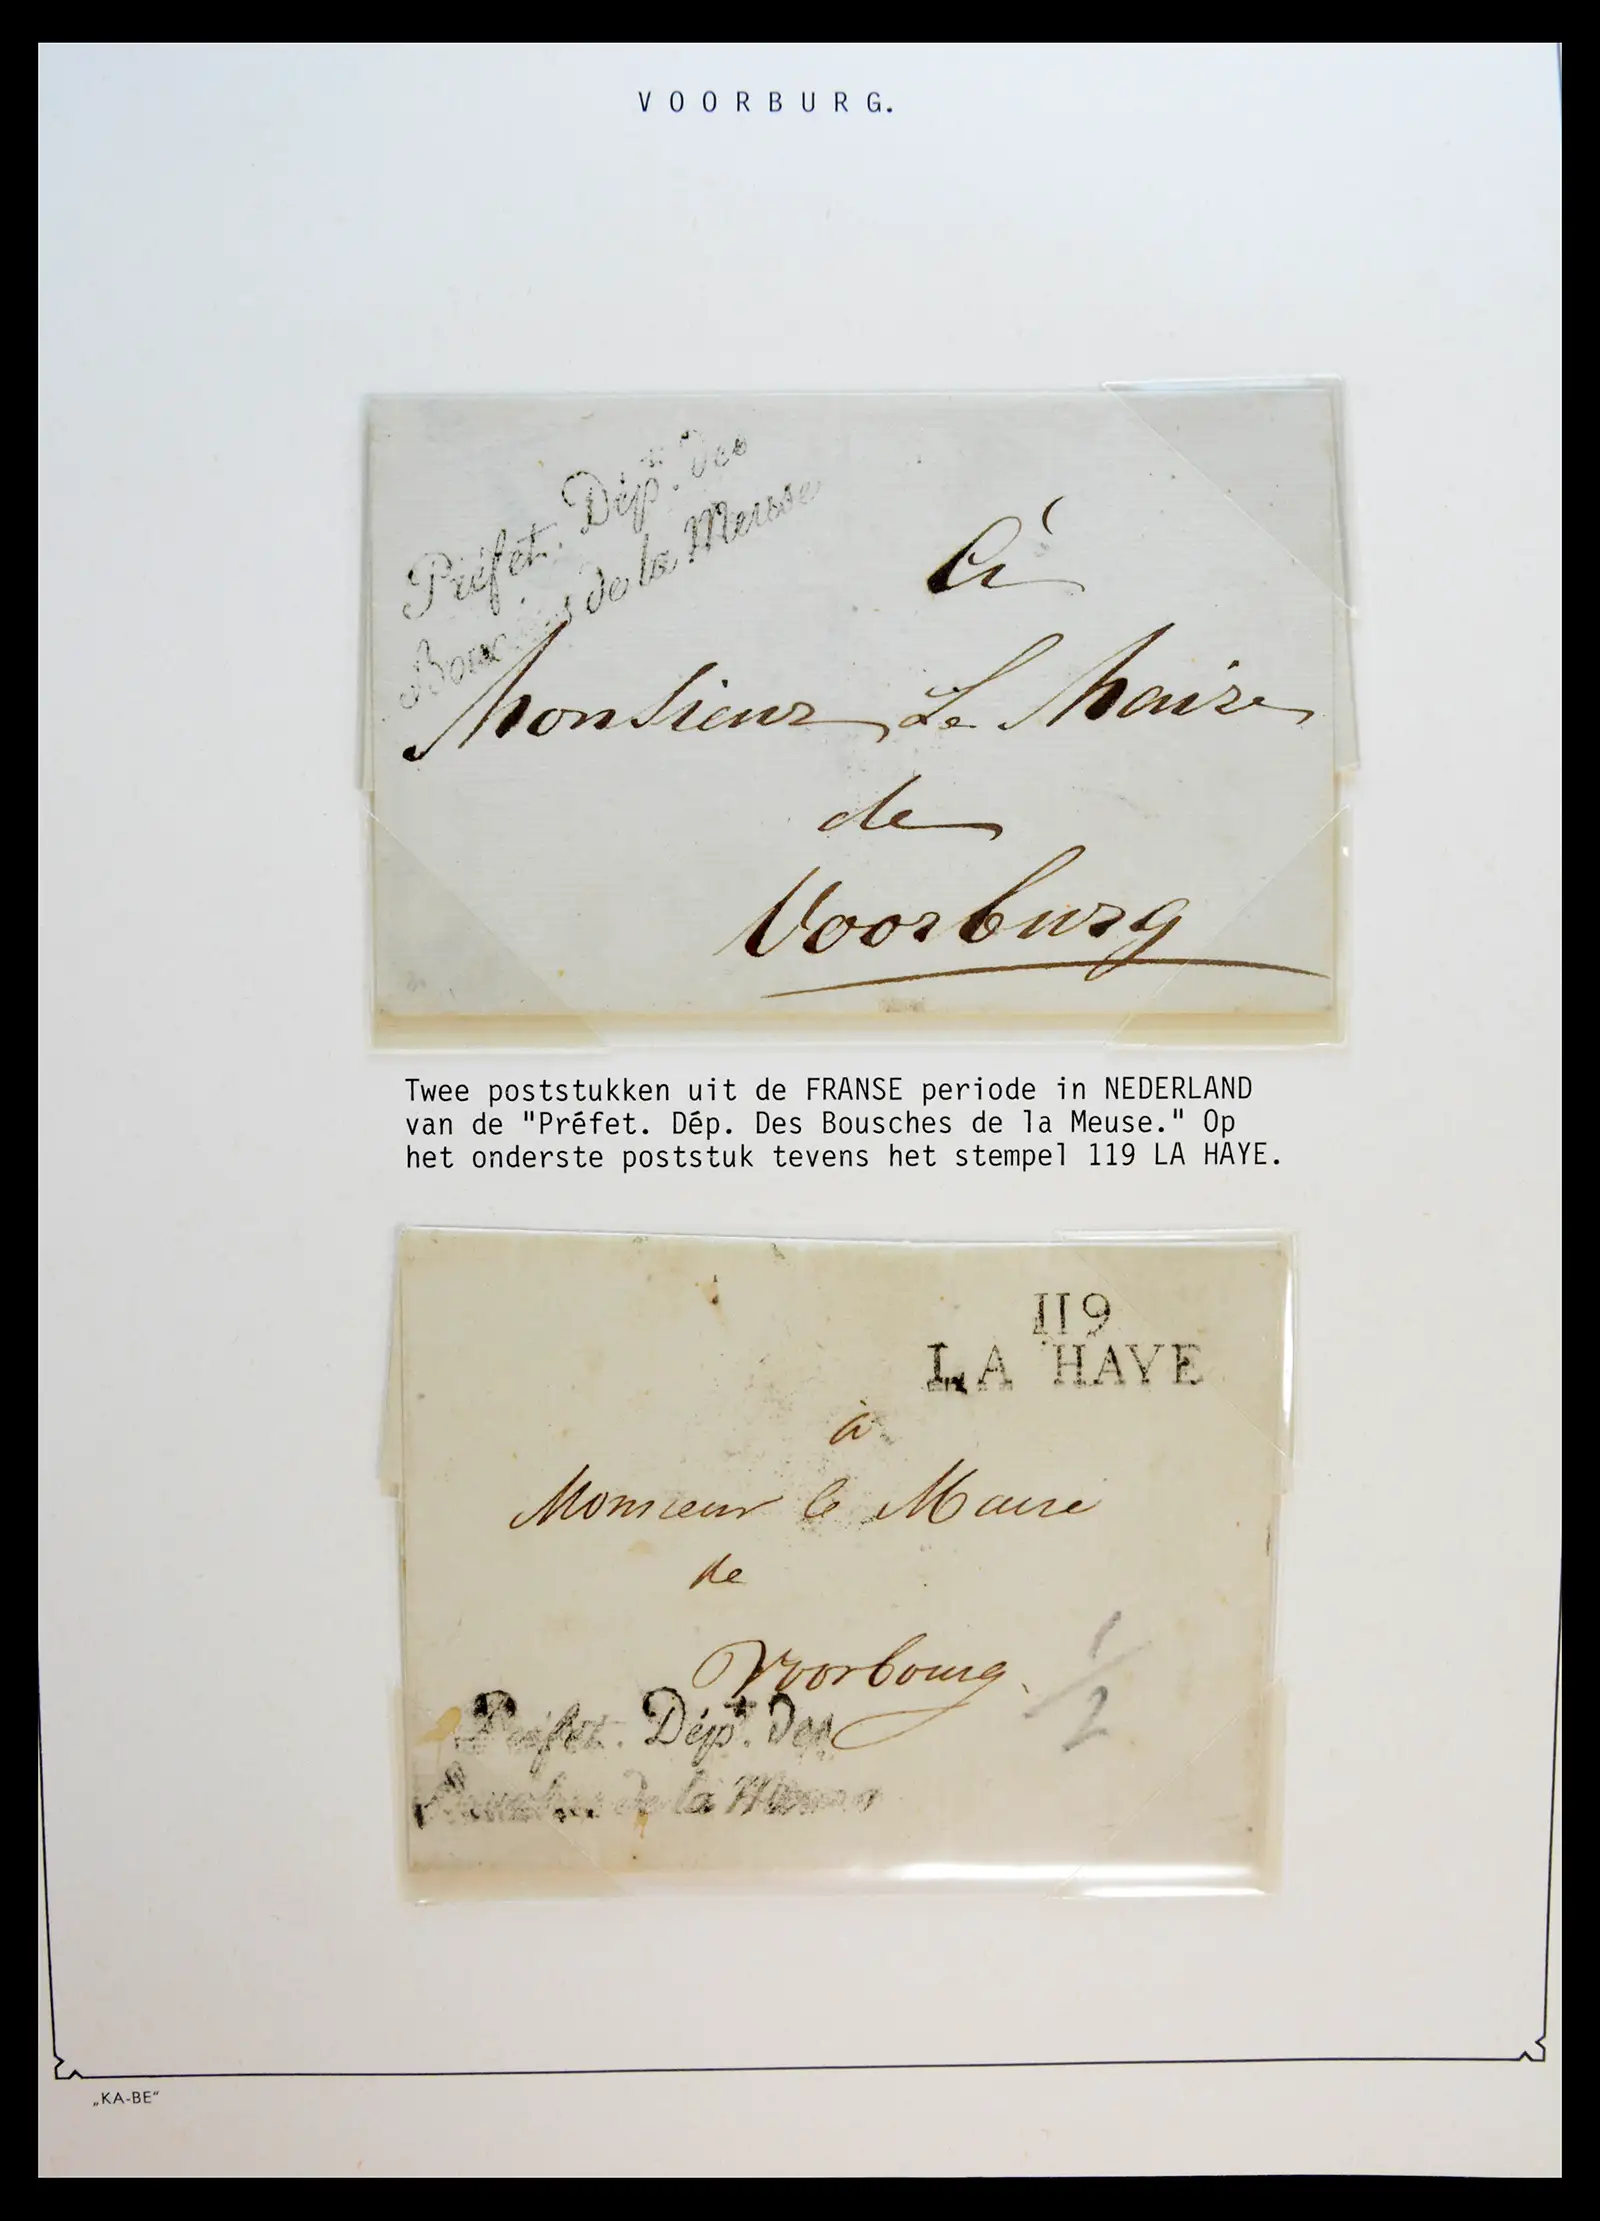 VOORBURG.
Préfet. Dépt. des
Bouches de la Meuse
à
Monsieur Le Maire
de
Voorburg
Twee poststukken uit de FRANSE periode in NEDERLAND
van de "Préfet. Dép. Des Bousches de la Meuse." Op
het onderste poststuk tevens het stempel 119 LA HAYE.
119
LA HAYE
à
Monsieur le Maire
de
Voorbourg.
1/2
Préfet. Dépt. des
Bouches de la Meuse
„KA-BE“